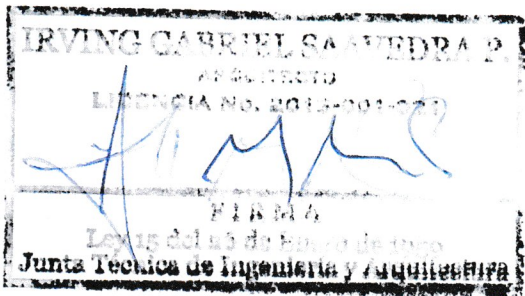 IRVING GABRIEL SAAVEDRA P.
ARQUITECTO
LICENCIA No. 2013-001-
FIRMA
Ley 15 del 26 de Enero de
Junta Técnica de Ingeniería y Arquitectura